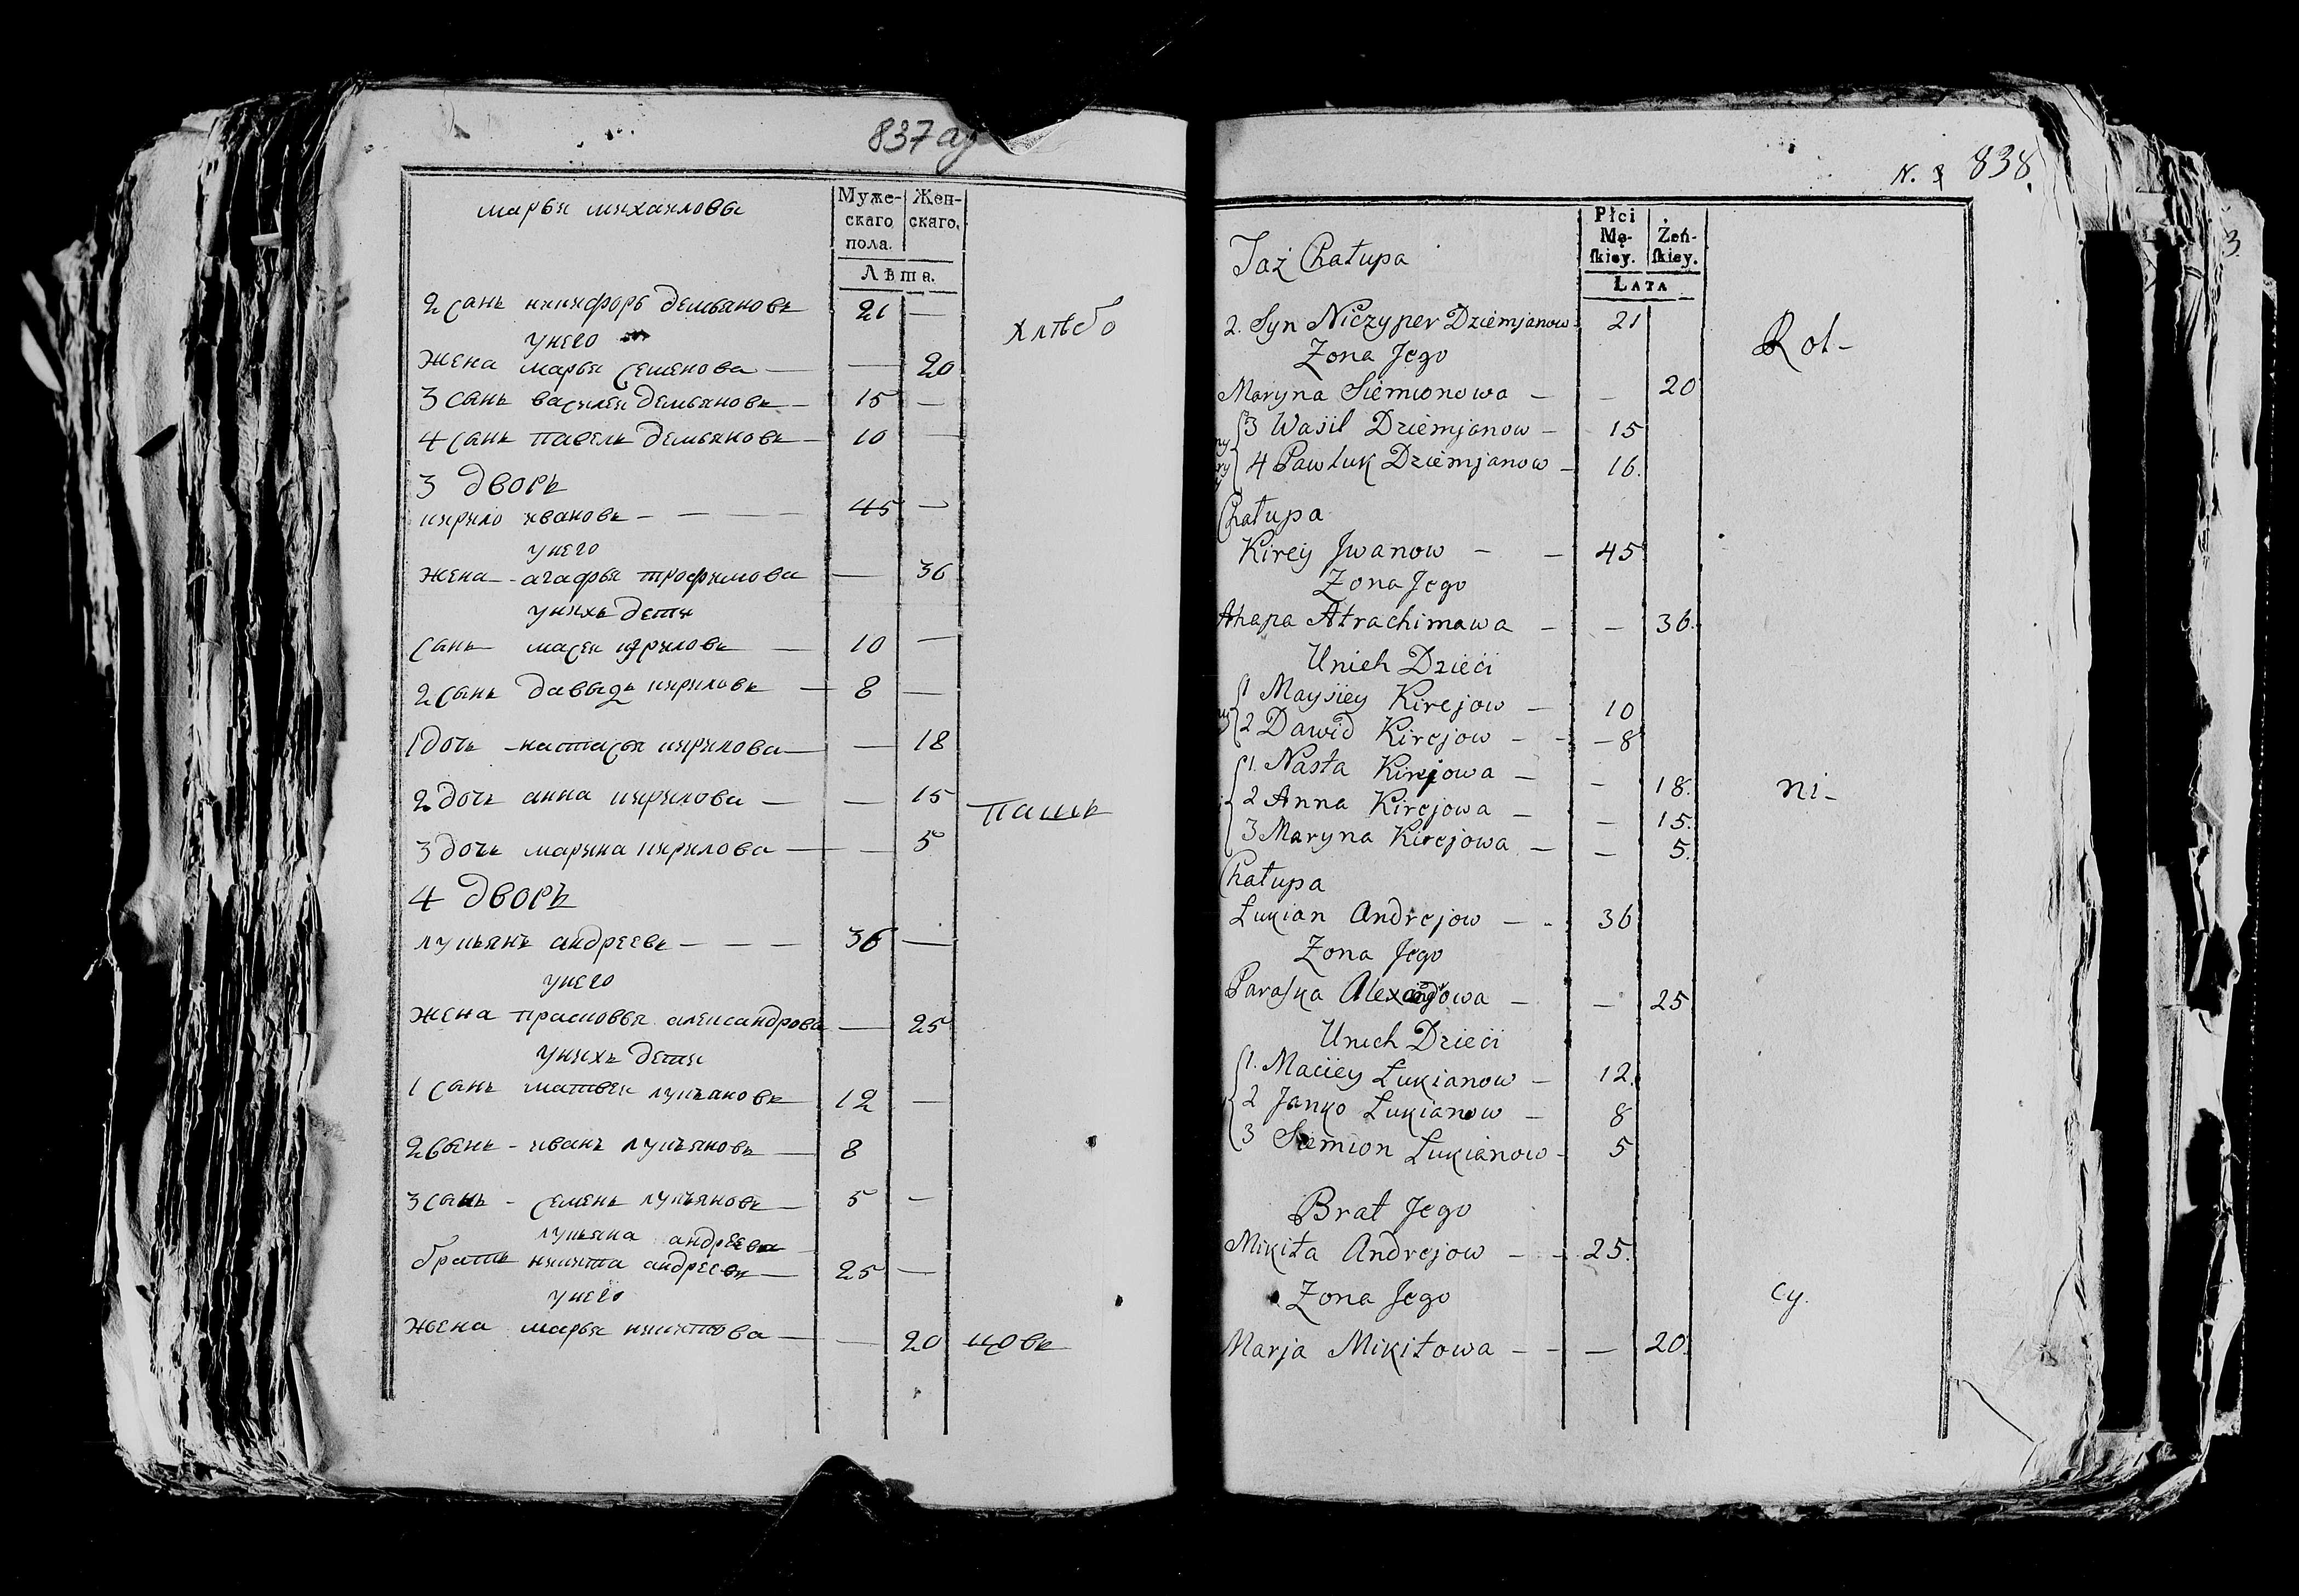 837 об
марья михаиловы
Муже-
скаго
пола.
Жен-
скаго.
Лѣта.
2 сынъ никифоръ демьяновъ 21 —
хлѣбо
у него
жена марья семенова — — 20
3 сынъ василеи демьяновъ — 15 —
4 сынъ павелъ демьяновъ — 10 —
3 дворъ
кирило ивановъ — — — — 45 —
у него
жена — агафья трофимова — 36
у нихъ дети
сынъ — мосеи кириловъ — 10 —
2 сынъ давыдъ кириловъ — 8 —
1 дочь — настасья кирилова — — 18
2 дочь анна кирилова — — 15
пашъ
3 дочь марина кирилова — — 5
4 дворъ
лукьянъ андреевъ — — — 36 —
у него
жена прасковья александрова — 25
у нихъ дети
1 сынъ матвеи лукьановъ 12 —
2 сынъ — иванъ лукъяновъ — 8
3 сынъ — семенъ лукъяновъ — 5 —
лукьяна андреева
братъ никита андреевъ — 25 —
у него
жена марья никитова — — 20
цовъ
N. 3 838
Taż Chałupa
Płci
Mę-
ſkiey.
Żeń-
ſkiey.
Lata
2. Syn Niczyper Dziemjanow 21
Rol-
Zona Jego
Maryna Siemionowa — — 20
3 Wasil Dziemjanow — 15
4 Pawluk Dziemjanow — 16.
Chałupa
Kirey Jwanow — — 45
Zona Jego
Ahapa Atrachimawa — — 36.
Unich Dzieci
1 Maysiey Kirejow — 10
2 Dawid Kirejow — - — 8
1. Nasta Kirejowa — - 18.
ni-
2 Anna Kirejowa — - 15.
3 Maryna Kirejowa — — 5.
Chałupa
Łukian Andrejow — - 36
Zona Jego
Paraſka Alexandrowa — — 25
Unich Dzieci
1. Maciey Łukianow — 12.
2 Janko Łukianow — 8
3 Siemion Łukianow - 5
Brat Jego
Mikita Andrejow — - 25.
Zona Jego
cy.
Marja Mikitowa — - — 20.
3